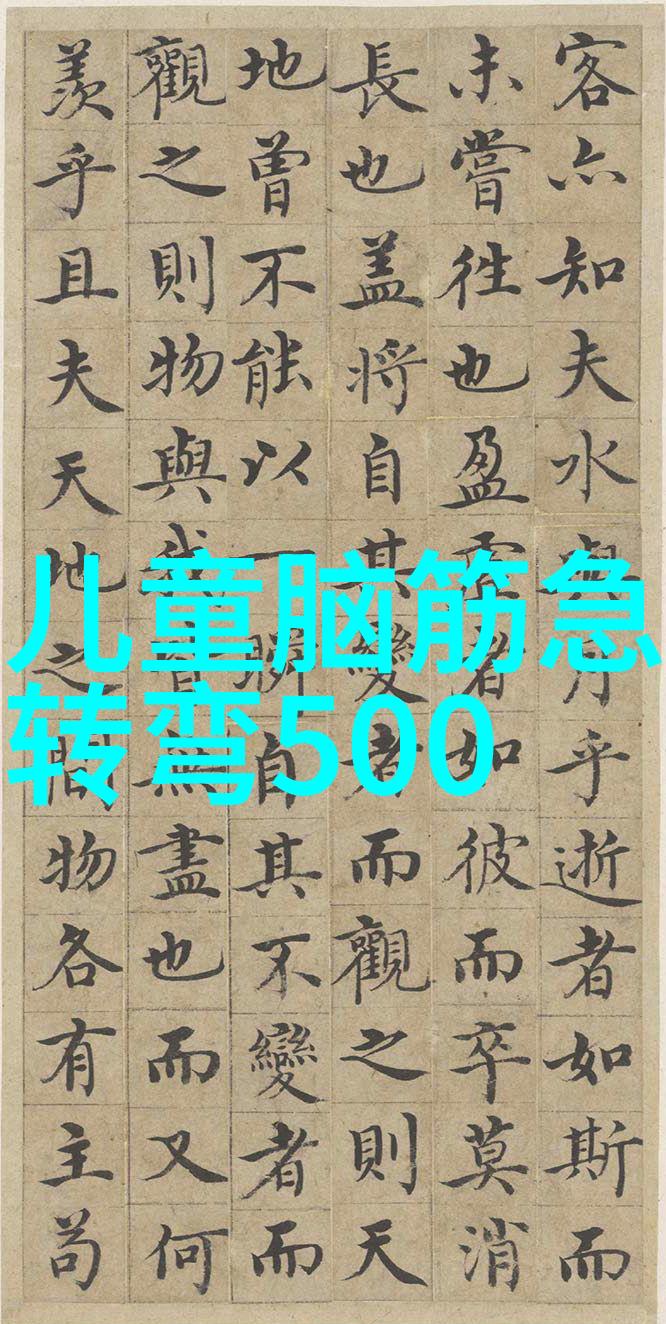 客亦知夫水與月乎逝者如斯而
未嘗往也盈虛者如彼而卒莫消
長也盖將自其變者而觀之則天
地曾不能以一瞬自其不變者而
觀之則物與我皆無盡也而又何
羨乎且夫天地之間物各有主苟
儿童脑筋急
转弯500